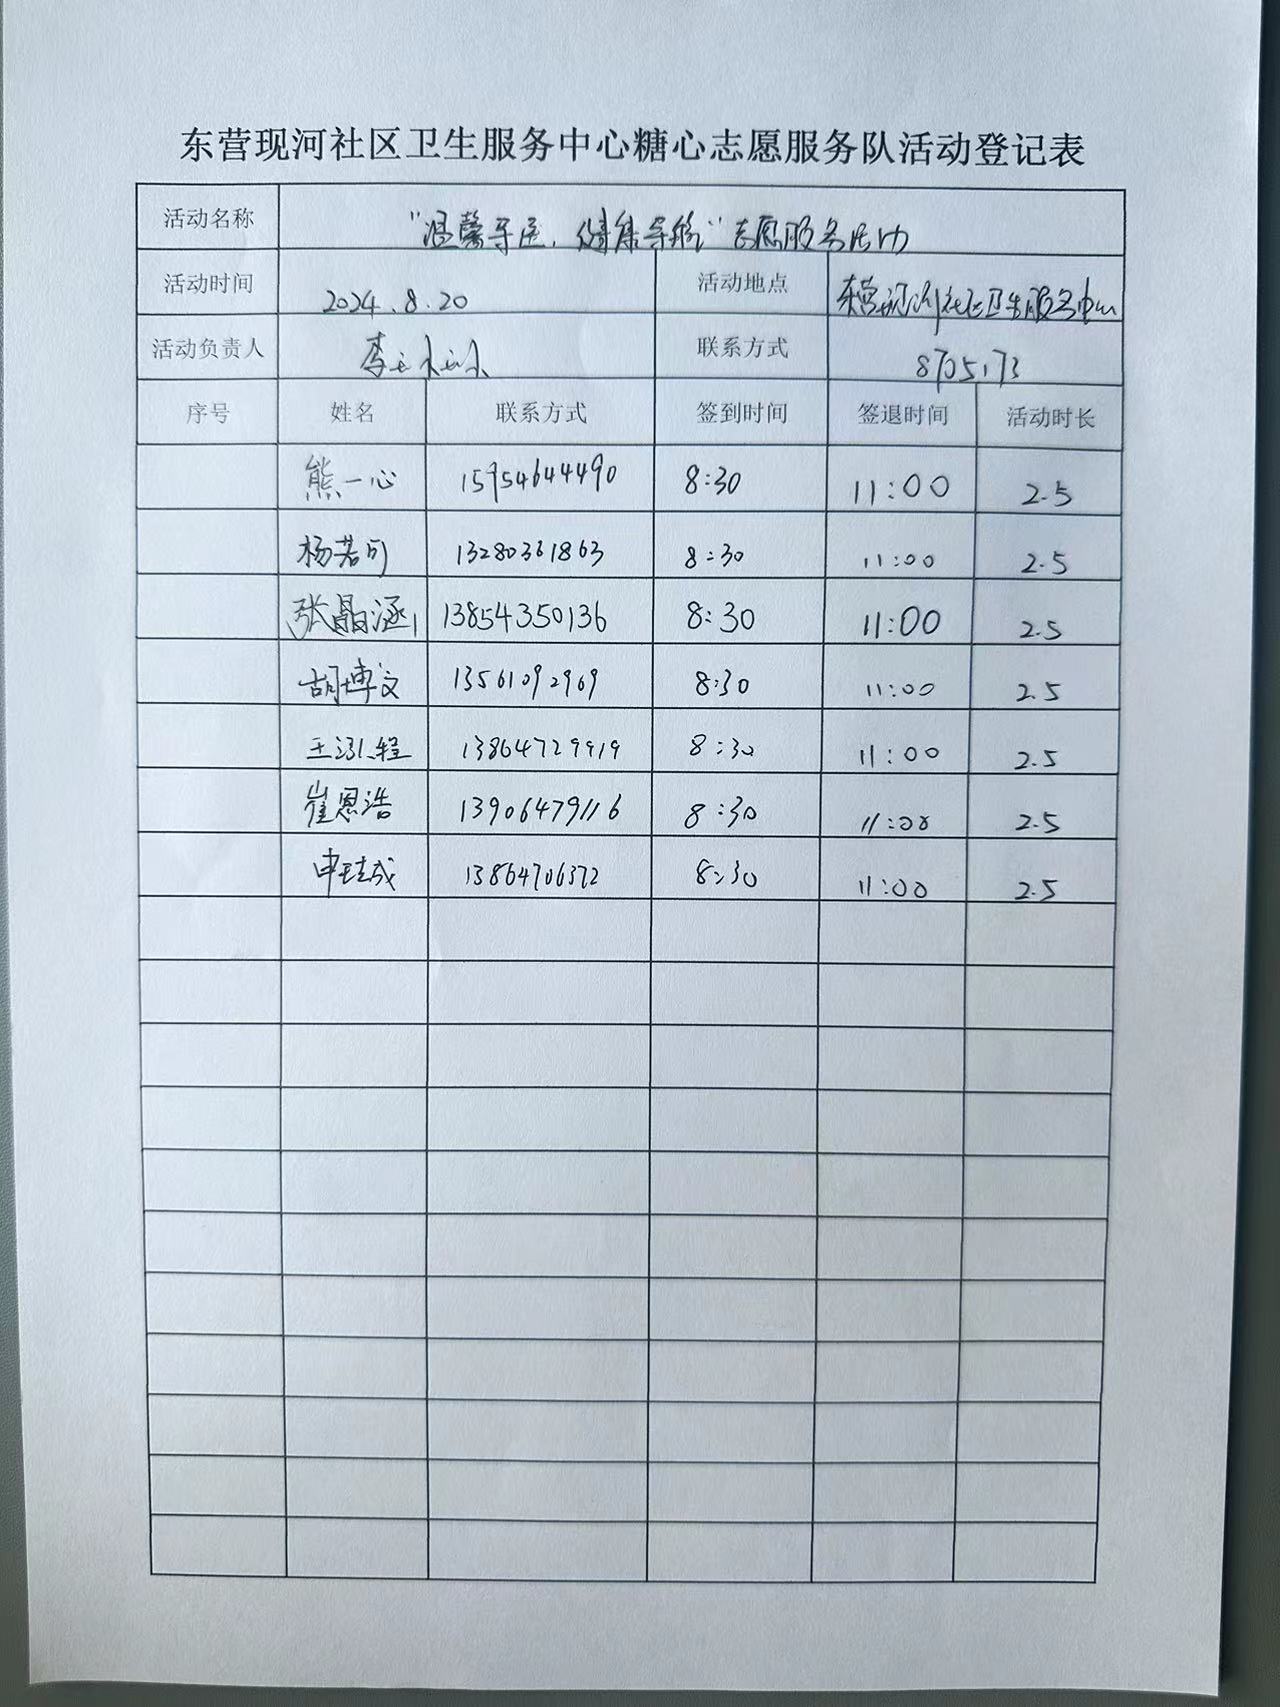 东营现河社区卫生服务中心糖心志愿服务队活动登记表
活动名称 "温馨导医，健康导航"志愿服务活动
活动时间 2024.8.20 活动地点 东营现河社区卫生服务中心
活动负责人 李 联系方式 8705173
序号 姓名 联系方式 签到时间 签退时间 活动时长
熊一心 15954644490 8:30 11:00 2.5
杨若可 13280361863 8:30 11:00 2.5
张晶涵 13854350136 8:30 11:00 2.5
胡博文 13561092969 8:30 11:00 2.5
王泓程 13864729919 8:30 11:00 2.5
崔恩浩 13906479116 8:30 11:00 2.5
申珪成 13864706372 8:30 11:00 2.5